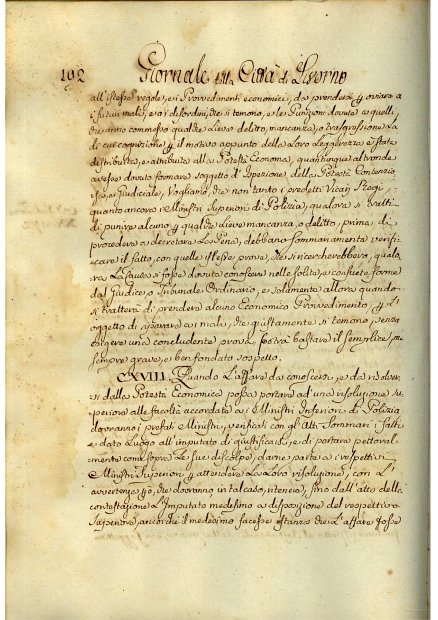 192 Giornale della Città di Livorno
all'istesse regole, e i Provvedimenti economici, da prendersi p ovviare a
i futuri mali, e ai disordini, che si temono, e le Punizioni dovute a quelli,
che anno commesso qualche lieve delitto, mancanza, o trasgressione La
di cui cognizione p il motivo appunto della Loro Leggerezza è stata
distribuita, e attribuita alla Potestà Economa, quantunque altronde
avesse dovuto formare soggetto d'Ispezione della Potestà Contenzio,,
sa, e Giudiciale, Vogliamo, che non tanto i predetti Vicarj Regj,
quanto ancora i Ministri Superiori di Polizia, qualora si tratti
di punire alcuno p qualche lieve mancanza, o delitto, prima di
procedere a decretare La Pena, debbano sommariamente verifi,,
care il fatto, con quelle istesse prove, che si ricercherebbero, qualo,,
ra La Causa si fosse dovuta conoscere nelle solite, e consuete forme
dal Giudice, o Tribunale Ordinario, e solamente allora quando
si tratterà di prendere alcuno Economico Provvedimento p l'
oggetto di riparare a i mali, che giustamente si temono, senza
esigere una concludente prova, potrà bastare il semplice, ma
sempre grave, e ben fondato sospetto.
CXVIII. Quando L'affare da conoscersi, e da risolver,,
si dalla Potestà Economica possa portare ad una risoluzione su,,
periore alle facoltà accordate ai Ministri Inferiori di Polizia
dovranno i prefati Ministri, verificati con gli Atti Sommarj i fatti
e dato Luogo all'imputato di giustificarsi, e di portare pettoral,,
mente come sopra Le sue discolpe, darne parte a i respettivi
Ministri Superiori p attendere La Loro risoluzione, con L'
avvertenza però, che dovranno in tal caso, ritenersi, fino dall'atto della
contestazione L'Imputato medesimo a disposizione del respettivo
Superiore, ancorchè il medesimo facesse istanza che L'affare fosse